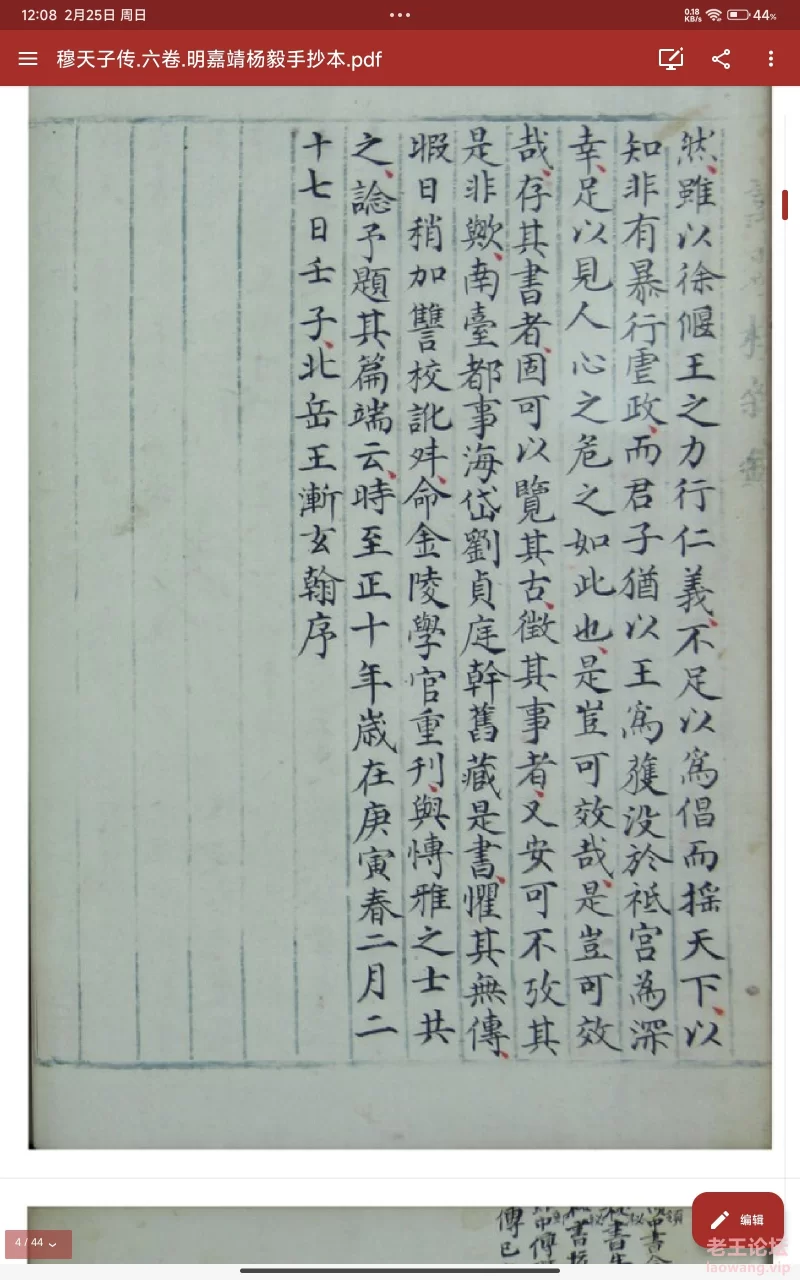 12:08 2月25日 周日
•••
0.18 KB/s
44%
穆天子传.六卷.明嘉靖杨毅手抄本.pdf
然、雖以徐偃王之力行仁義、不足以爲倡而揺天下、以
知非有暴行虐政、而君子猶以王爲獲没於祗宫為深
幸、足以見人心之危之如此也、是豈可效哉、是豈可效
哉、存其書者、固可以覽其古、徵其事者、又安可不攷其
是非歟、南臺都事海岱劉貞庭幹舊藏是書、懼其無傳、
暇日稍加讐校訛舛、命金陵學官重刊、與愽雅之士共
之、諗予題其篇端云、時至正十年歲在庚寅春二月二
十七日壬子、北岳王漸玄翰序
4 / 44
编辑
老王论坛
laowang.vip